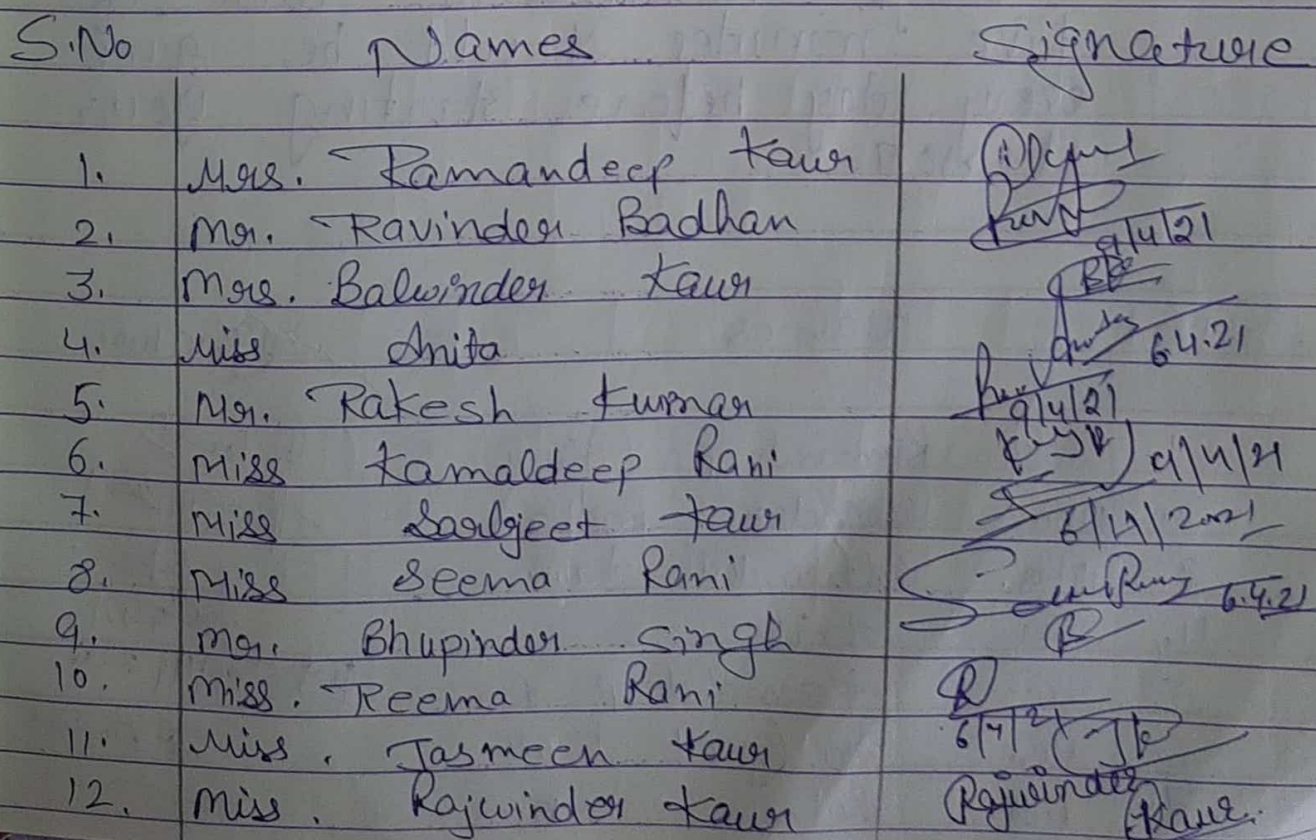 S.No Names Signature
1. Mrs. Ramandeep Kaur
2. Mr. Ravinder Badhan 9/4/21
3. Mrs. Balwinder Kaur
4. Miss Anita 6.4.21
5. Mr. Rakesh Kumar 9/4/21
6. Miss Kamaldeep Rani 9/4/21
7. Miss Sarbjeet Kaur 6/4/2021
8. Miss Seema Rani 6.4.21
9. Mr. Bhupinder Singh
10. Miss. Reema Rani
11. Miss. Jasmeen Kaur 6/4/21
12. Miss. Rajwinder Kaur Rajwinder Kaur.